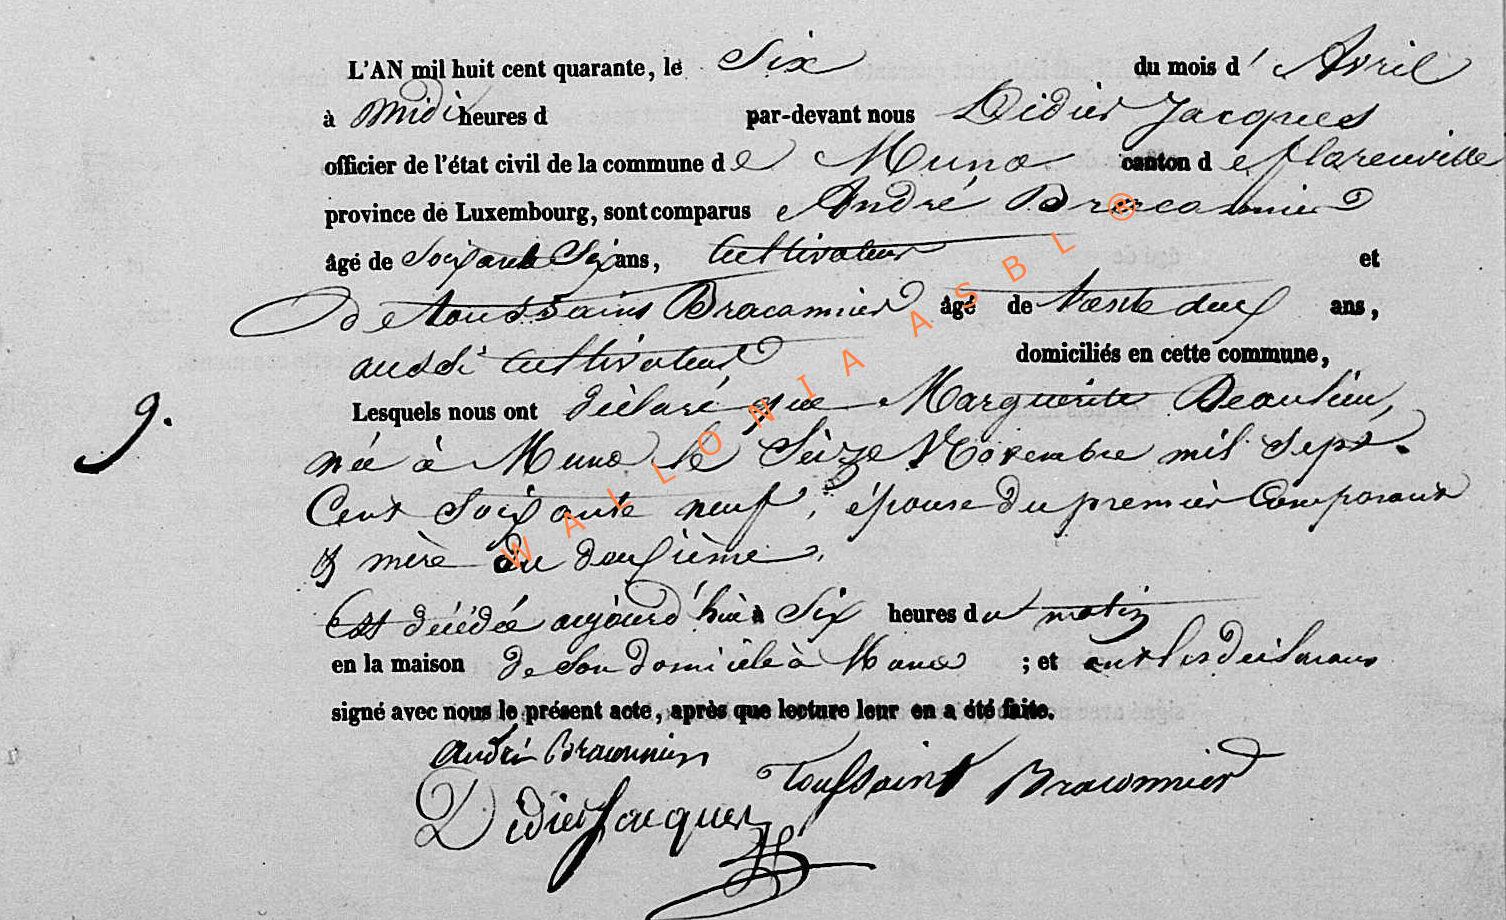 L'AN mil huit cent quarante, le Six du mois d' Avril
à midi heures d par-devant nous Didier Jacques
officier de l'état civil de la commune de Muno canton de florenville
province de Luxembourg, sont comparus André Braconnier
âgé de Soixante Six ans, Cultivateur et
de toussaint Braconnier âgé de trente deux ans,
aussi Cultivateur domiciliés en cette commune,
9.
Lesquels nous ont déclaré que Marguerite Beaulieu,
née à Muno le Seize Novembre mil Sept
Cent Soixante neuf, épouse du premier Comparant
& mère du deuxième,
Est décédée aujourd'hui à Six heures du matin
en la maison de Son domicile à Muno ; et ont les déclarans
signé avec nous le présent acte, après que lecture leur en a été faite.
André Braconnier
Toussaint Braconnier
Didier Jacques
WALLONIA ASBL ®